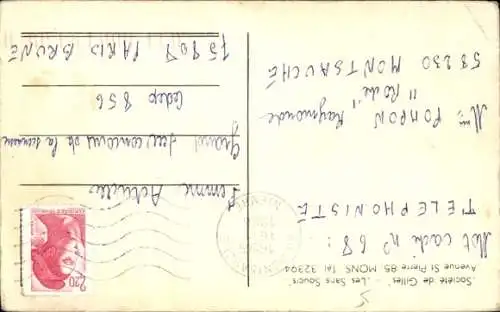 "Société de Gilles" - "Les Sans Soucis"
Avenue St Pierre 85 MONS Tél 32304
Mot caché n° 68 :
TELEPHONISTE
Mme POMPON Raymonde
58230 MONTSAUCHE
Femme Actuelle
Grand jeu concours de la semaine
Cedep 856
75808 PARIS BRUNE
2,20